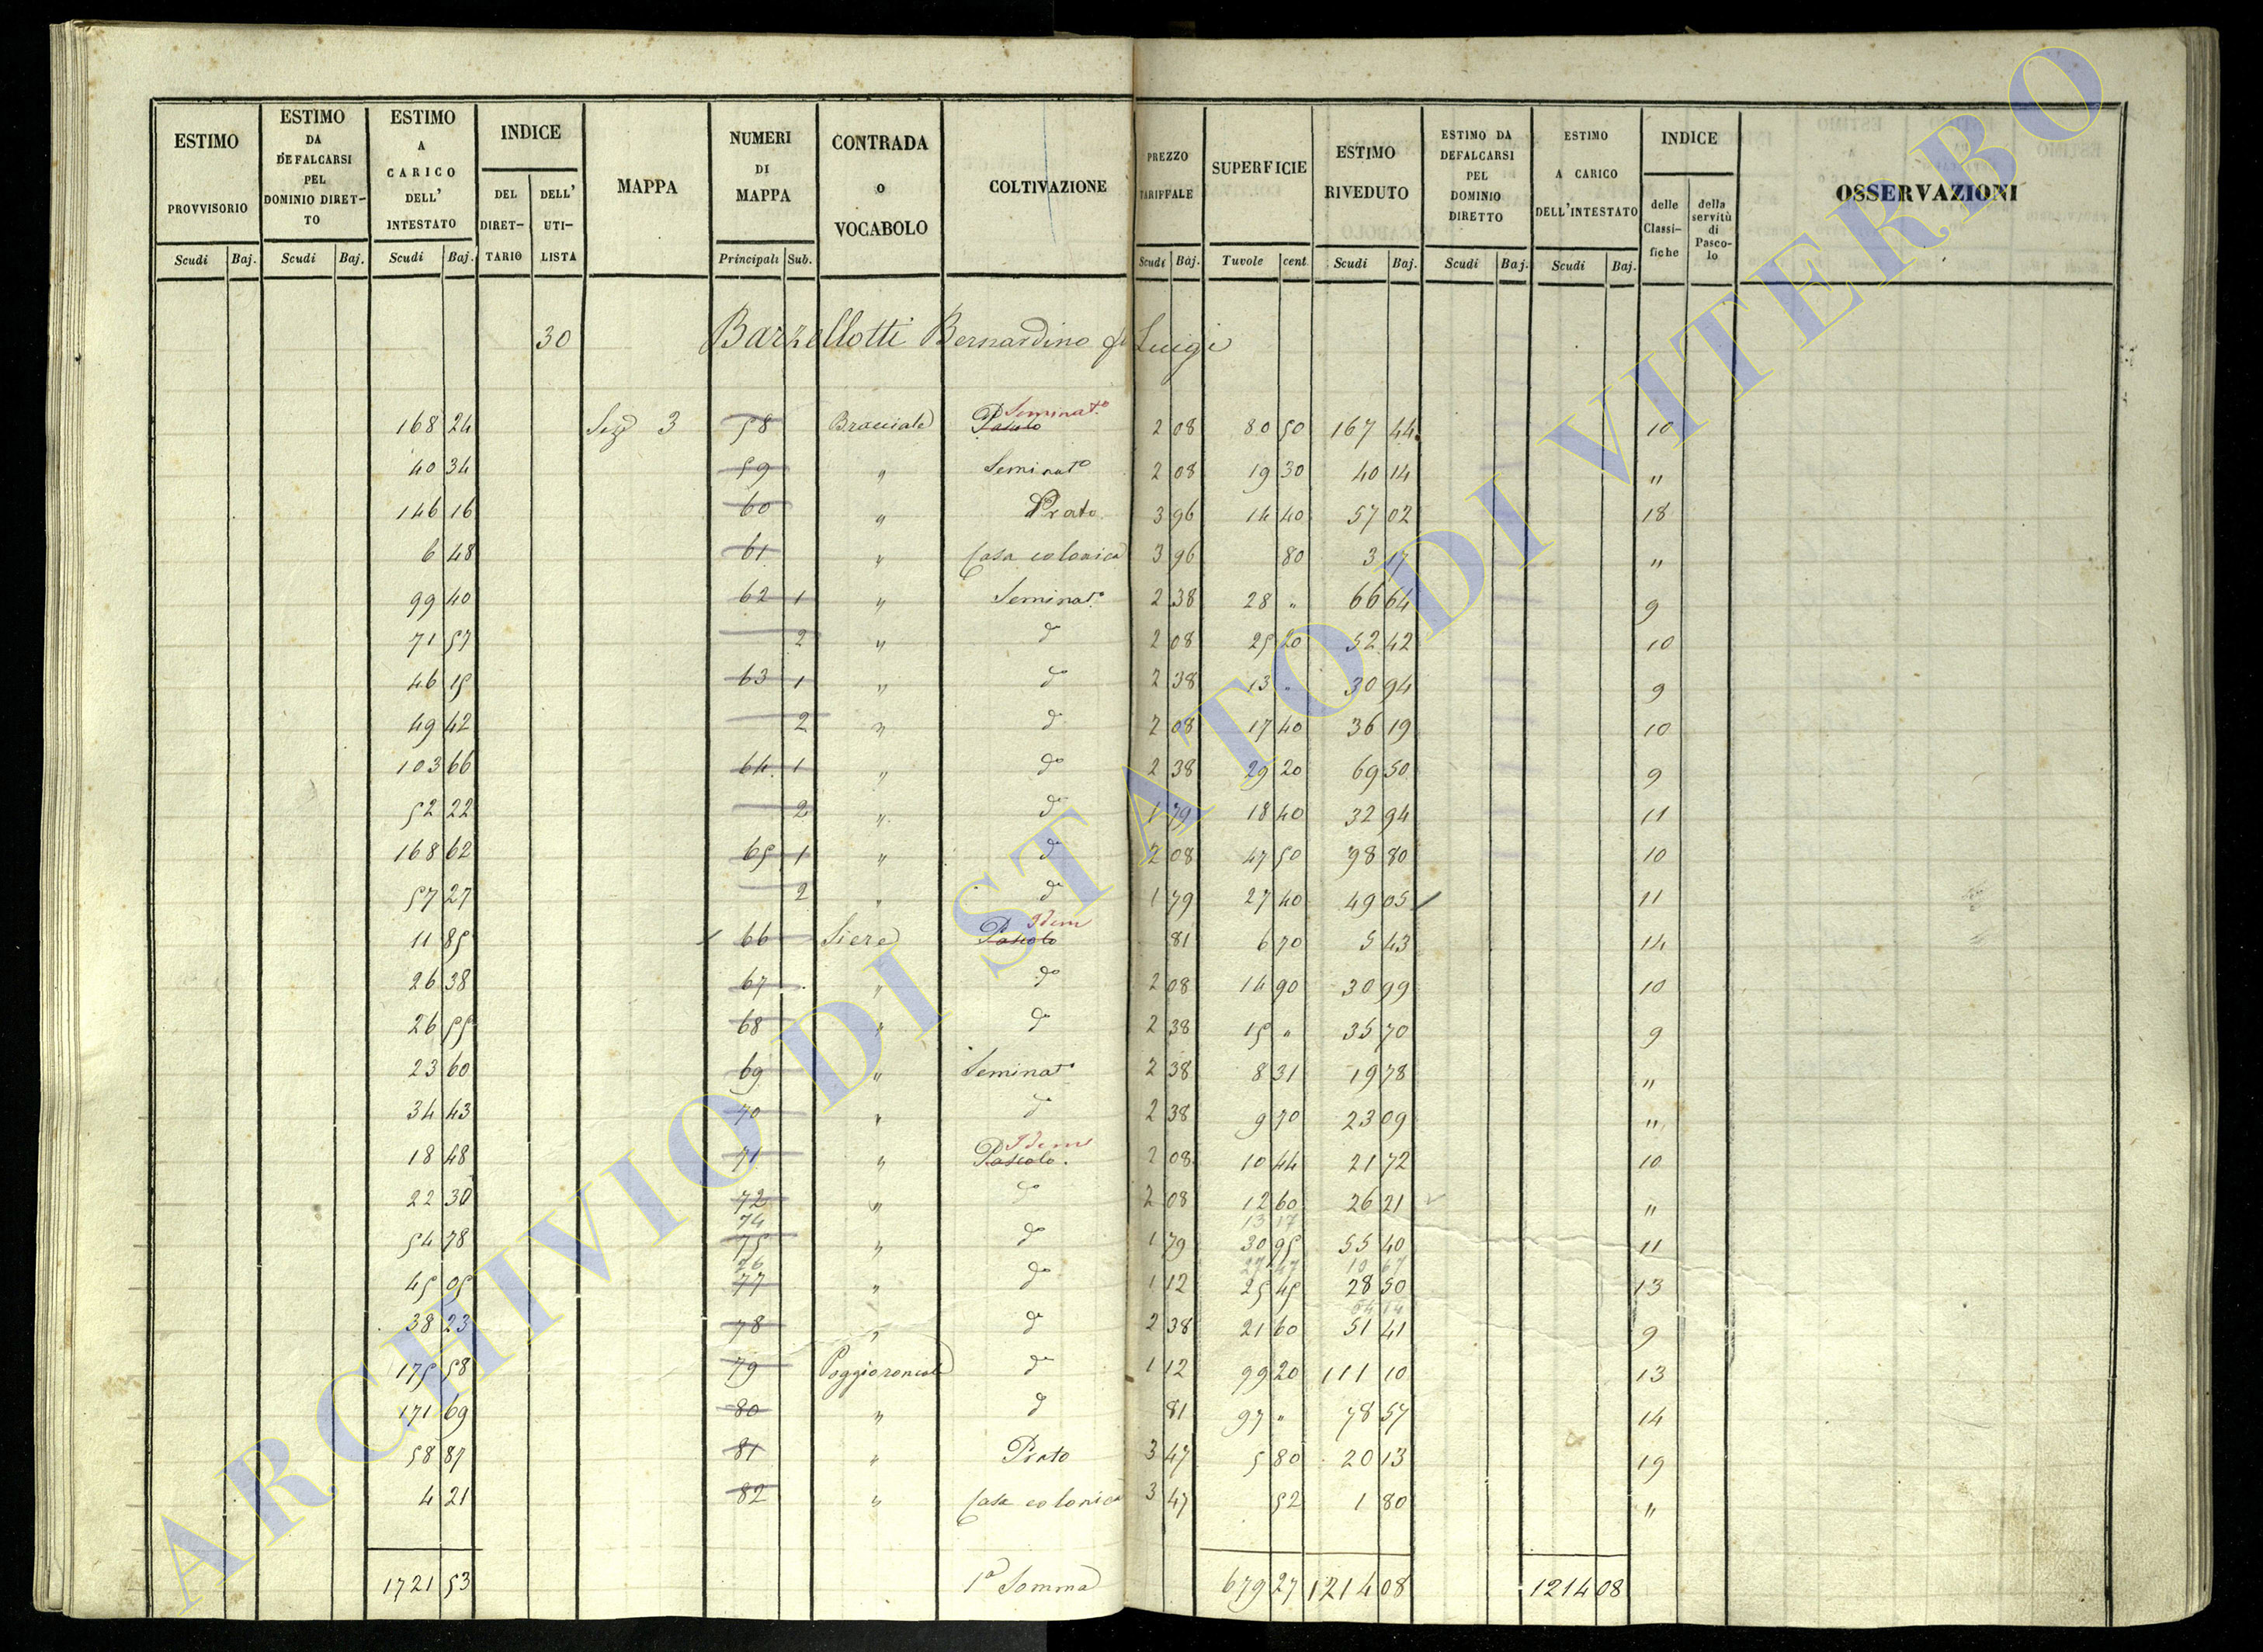 ESTIMO PROVVISORIO
ESTIMO DA DEFALCARSI PEL DOMINIO DIRET- TO
ESTIMO A CARICO DELL' INTESTATO
INDICE
DEL DIRET- TARIO
DELL' UTI- LISTA
MAPPA
NUMERI DI MAPPA
CONTRADA o VOCABOLO
COLTIVAZIONE
PREZZO TARIFFALE
SUPERFICIE
ESTIMO RIVEDUTO
ESTIMO DA DEFALCARSI PEL DOMINIO DIRETTO
ESTIMO A CARICO DELL'INTESTATO
INDICE
delle Classi- fiche
della servitù di Pasco- lo
OSSERVAZIONI
Scudi Baj. Scudi Baj. Scudi Baj. Principali Sub. Scudi Baj. Tavole cent Scudi Baj. Scudi Baj. Scudi Baj.
30 Barzellotti Bernardino di Luigi
Seminat.o
168 24 Sez 3 58 Bracciale Pascolo 2 08 80 50 167 44 10
40 34 59 " Seminato 2 08 19 30 40 14 "
146 16 60 " Prato 3 96 14 40 57 02 18
6 48 61 " Casa colonica 3 96 80 3 17 "
99 40 62 1 " Seminat.o 2 38 28 " 66 64 9
71 57 2 " do 2 08 25 20 52 42 10
46 15 63 1 " do 2 38 13 " 30 94 9
49 42 2 " do 2 08 17 40 36 19 10
103 66 64 1 " do 2 38 29 20 69 50 9
52 22 2 " do 1 79 18 40 32 94 11
168 62 65 1 " do 2 08 47 50 98 80 10
57 27 2 " do 1 79 27 40 49 05 11
Idem
11 85 66 Siere Pascolo 81 6 70 5 43 14
26 38 67 " do 2 08 14 90 30 99 10
26 55 68 " do 2 38 15 " 35 70 9
23 60 69 " Seminato 2 38 8 31 19 78 "
34 43 70 " do 2 38 9 70 23 09 "
Idem
18 48 71 " Pascolo 2 08 10 44 21 72 10
22 30 72 " do 2 08 12 60 26 21 "
74 13 17
54 78 75 " do 1 79 30 95 55 40 11
76
45 05 77 " do 1 12 25 45 28 50 13
38 23 78 " do 2 38 21 60 51 41 9
175 58 79 Poggioroncole do 1 12 99 20 111 10 13
171 69 80 " do 81 97 " 78 57 14
58 87 81 " Prato 3 47 5 80 20 13 19
4 21 82 " Casa colonica 3 47 52 1 80 "
1721 53 1a Somma 679 27 1214 08 1214 08
ARCHIVIO DI STATO DI VITERBO